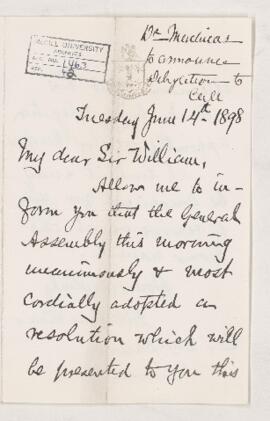 McGILL UNIVERSITY
ARCHIVES
ACC. NO. 1463
REF.
Dr
to announce
delegation to
call
Tuesday June 14th 1898
My dear Sir William,
Allow me to in-
form you that the General
Assembly this morning
unanimously & most
cordially adopted a
resolution which will
be presented to you this